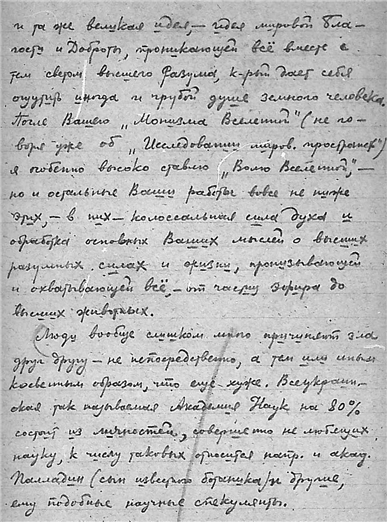 и та же великая идея, – идея мировой Бла-
гости и Доброты, проникающей всё вместе с
тем светом высшего Разума, к-рый дает себя
ощутить иногда и грубой душе земного человека.
После Вашего „Монизма Вселенной" (не го-
воря уже об „Исследовании миров. пространств")
я особенно высоко ставлю „Волю Вселенной", –
но и остальные Ваши работы вовсе не ниже
этих, – в них – колоссальная сила духа и
обработка основных Ваших мыслей о высших
разумных силах и жизни, пронизывающей
и охватывающей всё, – от частиц эфира до
высших животных.
Люди вообще слишком много причиняют зла
друг другу – не непосредственно, а тем или иным
косвенным образом, что еще хуже. Всеукраин-
ская так называемая Академия Наук на 80%
состоит из личностей, совершенно не любящих
науку, к числу таковых относится напр. и акад.
Палладин (сын известного ботаника) и другие,
ему подобные научные спекулянты.